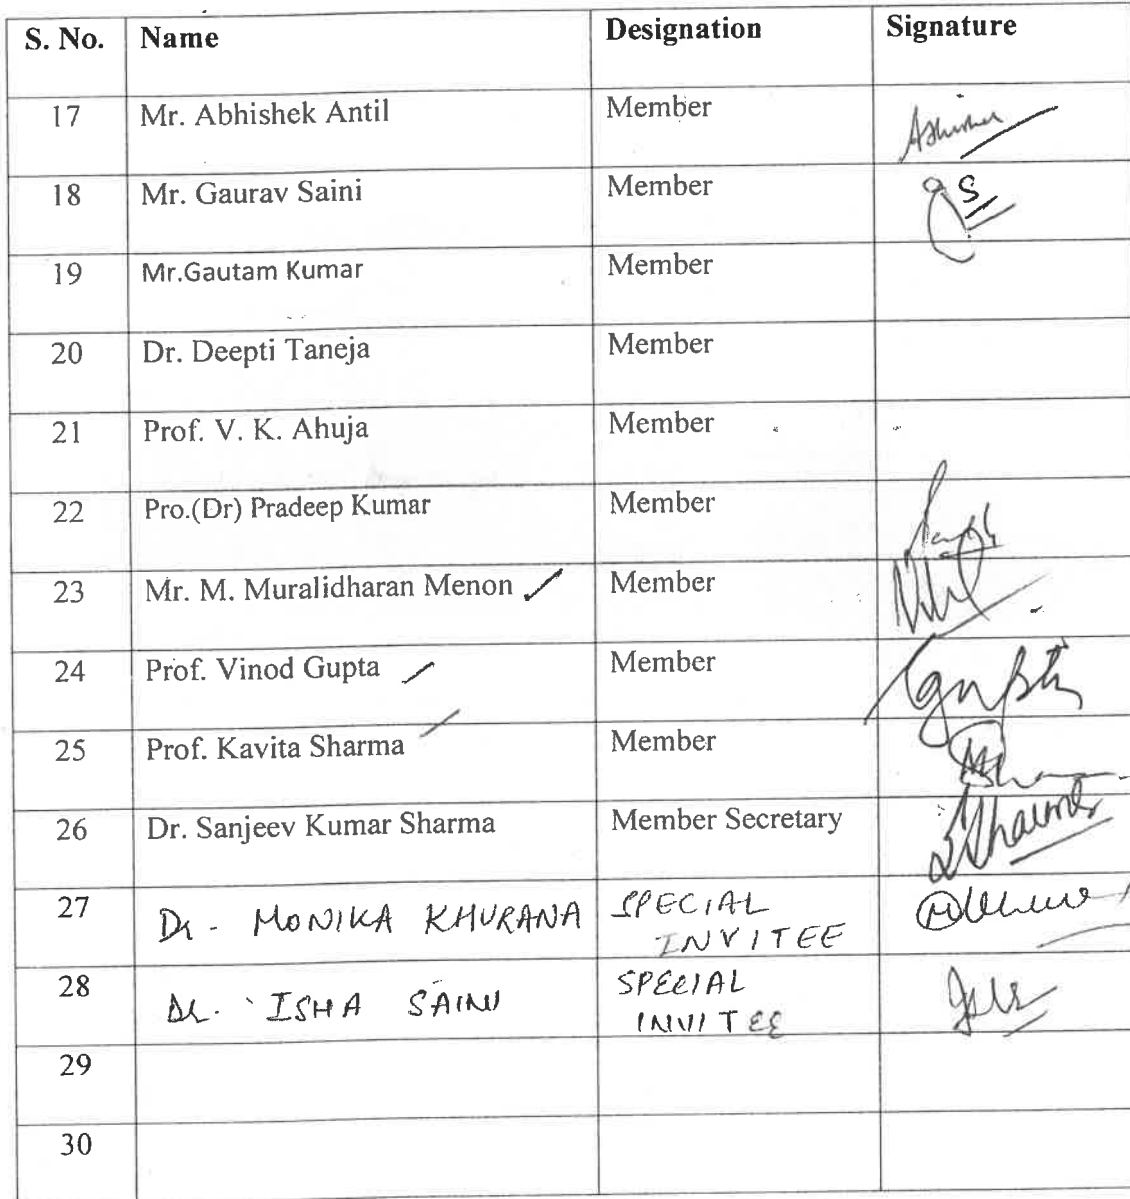 S. No. Name Designation Signature
17 Mr. Abhishek Antil Member
18 Mr. Gaurav Saini Member
19 Mr.Gautam Kumar Member
20 Dr. Deepti Taneja Member
21 Prof. V. K. Ahuja Member
22 Pro.(Dr) Pradeep Kumar Member
23 Mr. M. Muralidharan Menon Member
24 Prof. Vinod Gupta Member Gupta
25 Prof. Kavita Sharma Member
26 Dr. Sanjeev Kumar Sharma Member Secretary Sharma
27 Dr. MONIKA KHURANA SPECIAL
INVITEE
28 Dr. ISHA SAINI SPECIAL
INVITEE
29
30